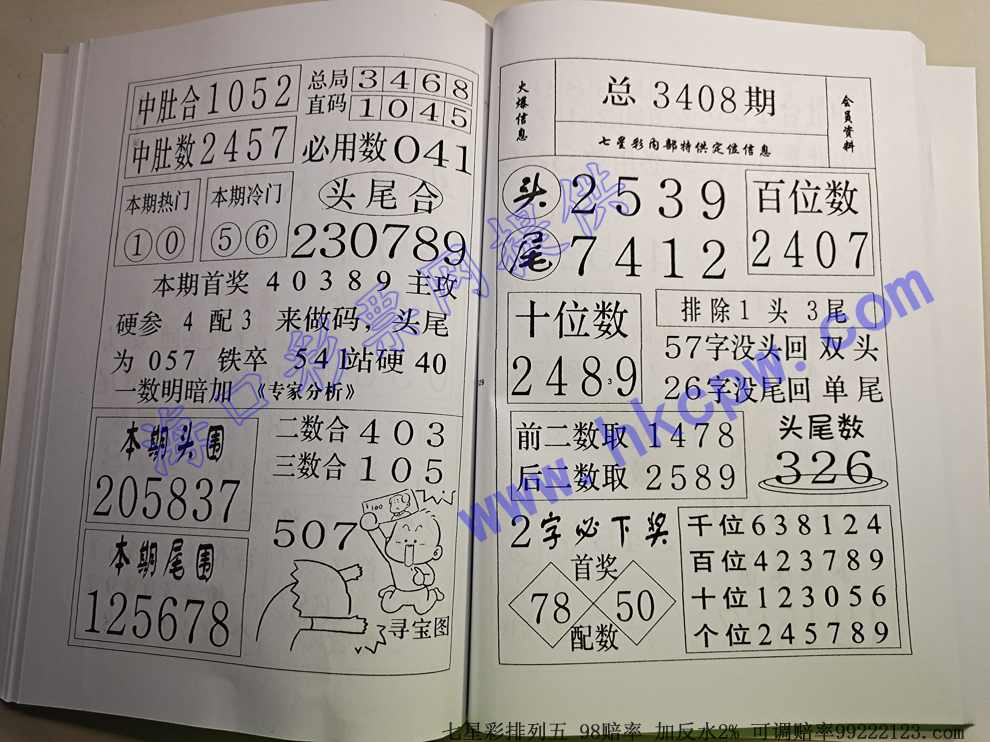 中肚合1052
总局 3468
直码 1045
中肚数2457
必用数041
本期热门
①⓪
本期冷门
⑤⑥
头尾合
230789
本期首奖 40389 主攻
硬参 4 配3 来做码，头尾
为 057 铁卒 541站硬 40
一数明暗加 《专家分析》
本期头围
205837
二数合403
三数合105
本期尾围
125678
507
寻宝图
火爆信息
总 3408期
七星彩内部特供定位信息
会员资料
头 2539
尾 7412
百位数
2407
十位数
2489
排除1 头 3尾
57字没头回 双 头
26字没尾回 单 尾
前二数取 1478
后二数取 2589
头尾数
326
2字必下奖
首奖
78 50
配数
千位638124
百位423789
十位123056
个位245789
海口彩票网提供
www.hkcpw.com
七星彩排列五 98赔率 加反水2% 可调赔率99222123.com